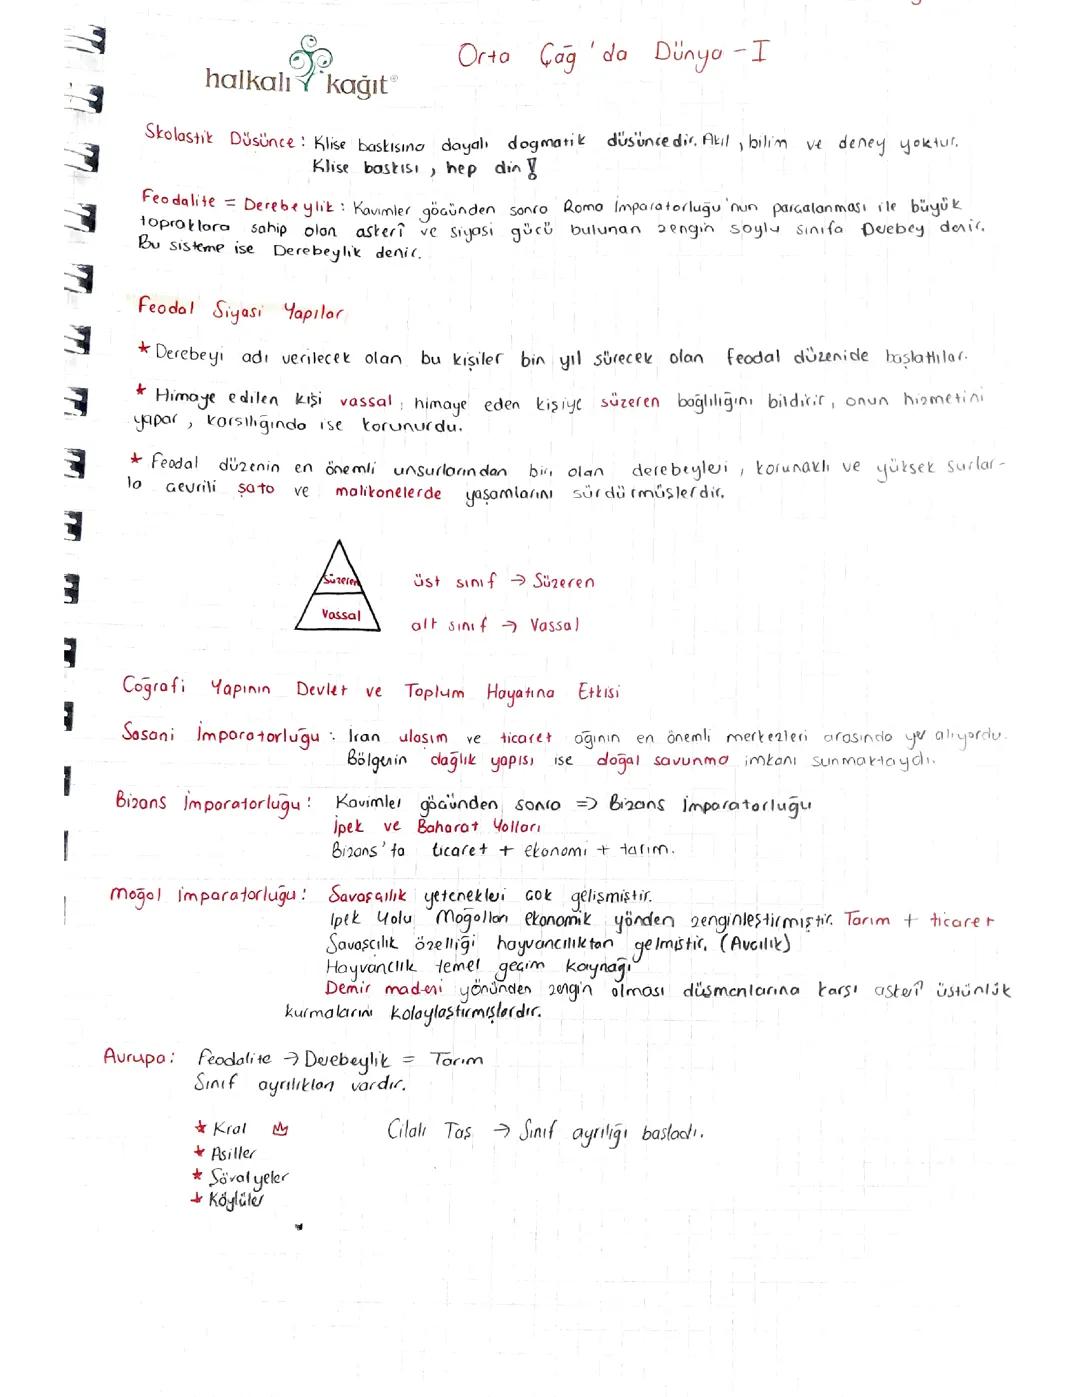 halkalı kağıt®
Orta Çağ'da Dünya - I
Skolastik Düşünce : Klise baskısına dayalı dogmatik düşüncedir. Akıl, bilim ve deney yoktur.
Klise baskısı, hep din!
Feodalite = Derebeylik : Kavimler göçünden sonra Roma İmparatorluğu'nun parçalanması ile büyük
topraklara sahip olan askerî ve siyasi gücü bulunan zengin soylu sınıfa Derebey denir.
Bu sisteme ise Derebeylik denir.
Feodal Siyasi Yapılar
* Derebeyi adı verilecek olan bu kişiler bin yıl sürecek olan feodal düzenide başlattılar.
* Himaye edilen kişi vassal, himaye eden kişiye süzeren bağlılığını bildirir, onun hizmetini
yapar, karşılığında ise korunurdu.
* Feodal düzenin en önemli unsurlarından biri olan derebeyleri, korunaklı ve yüksek surlar-
la çevrili şato ve malikanelerde yaşamlarını sürdürmüşlerdir.
Süzeren
üst sınıf → Süzeren
Vassal
alt sınıf → Vassal
Coğrafi Yapının Devlet ve Toplum Hayatına Etkisi
Sasani İmparatorluğu : İran ulaşım ve ticaret ağının en önemli merkezleri arasında yer alıyordu.
Bölgenin dağlık yapısı ise doğal savunma imkanı sunmaktaydı.
Bizans İmparatorluğu : Kavimler göçünden sonra => Bizans İmparatorluğu
İpek ve Baharat Yolları
Bizans'ta ticaret + ekonomi + tarım.
Moğol İmparatorluğu : Savaşçılık yetenekleri çok gelişmiştir.
İpek Yolu Moğolları ekonomik yönden zenginleştirmiştir. Tarım + ticaret
Savaşcılık özelliği hayvancılıktan gelmiştir. (Avcılık)
Hayvancılık temel geçim kaynağı
Demir madeni yönünden zengin olması düşmanlarına karşı askerî üstünlük
kurmalarını kolaylaştırmışlardır.
Avrupa : Feodalite → Derebeylik = Tarım
Sınıf ayrılıkları vardır.
* Kral
Cilalı Taş → Sınıf ayrılığı başladı.
* Asiller
* Şövalyeler
* Köylüler